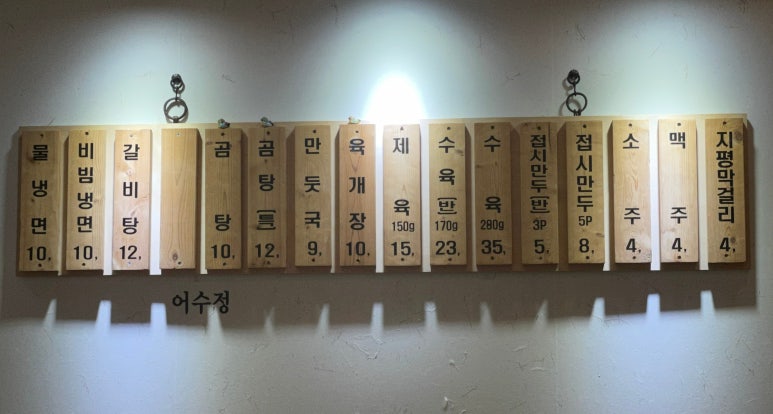 물냉면 10,
비빔냉면 10,
갈비탕 12,
곰탕 10,
곰탕(특) 12,
만둣국 9,
육개장 10,
제육 150g 15,
수육(반) 170g 23,
수육 280g 35,
접시만두(반) 3P 5,
접시만두 5P 8,
소주 4,
맥주 4,
지평막걸리 4,
어수정